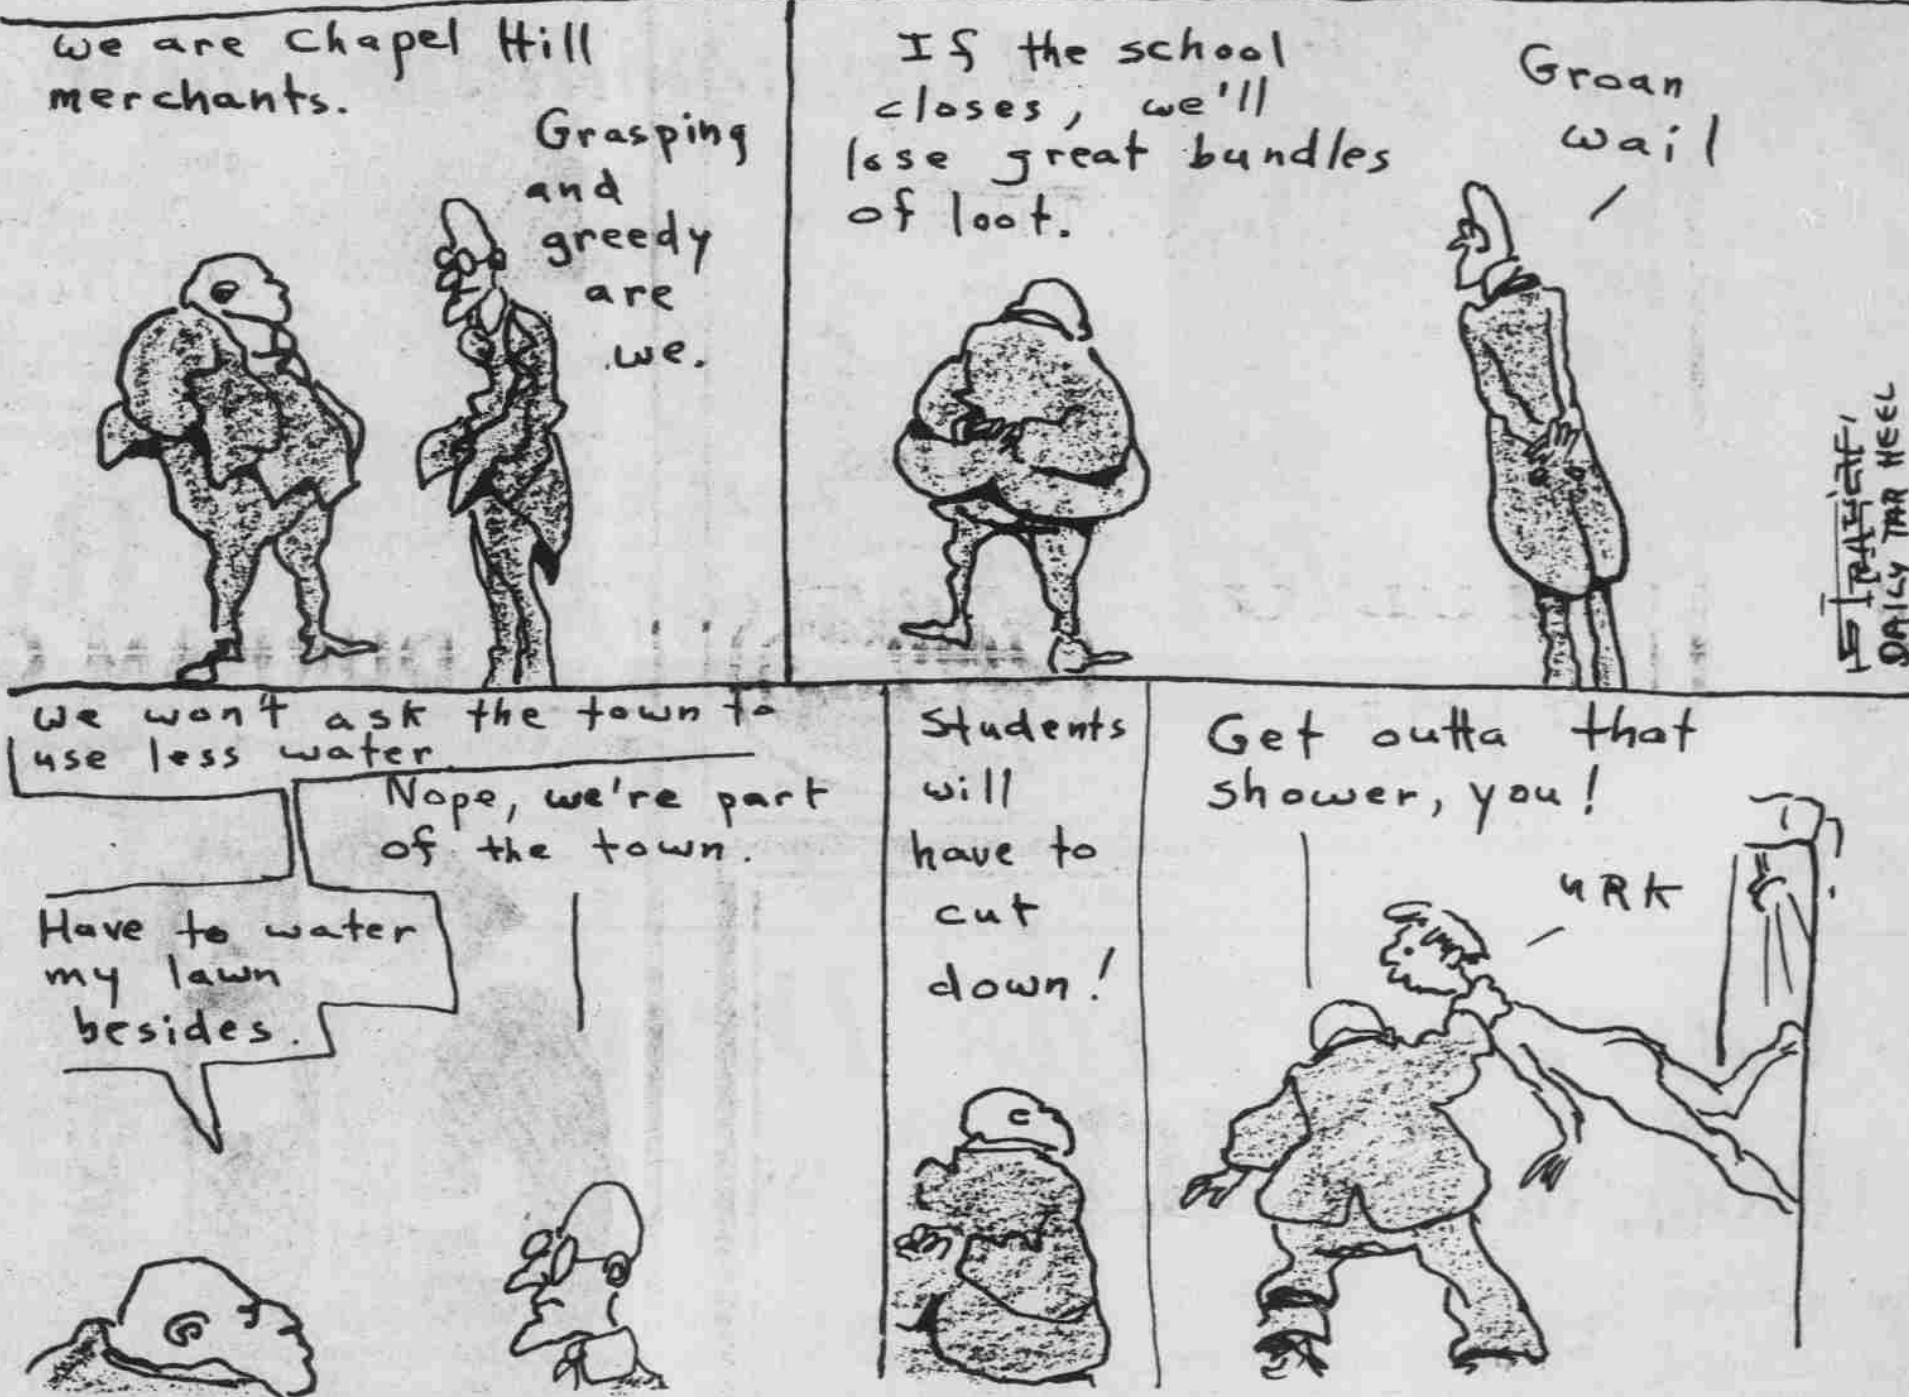 We are Chapel Hill
merchants.
Grasping
and
greedy
are
we.
If the school
closes, we'll
lose great bundles
of loot.
Groan
wail
DAILY TAR HEEL
We won't ask the town to
use less water.
Nope, we're part
of the town.
Have to water
my lawn
besides.
Students
will
have to
cut
down!
Get outta that
shower, you!
URK